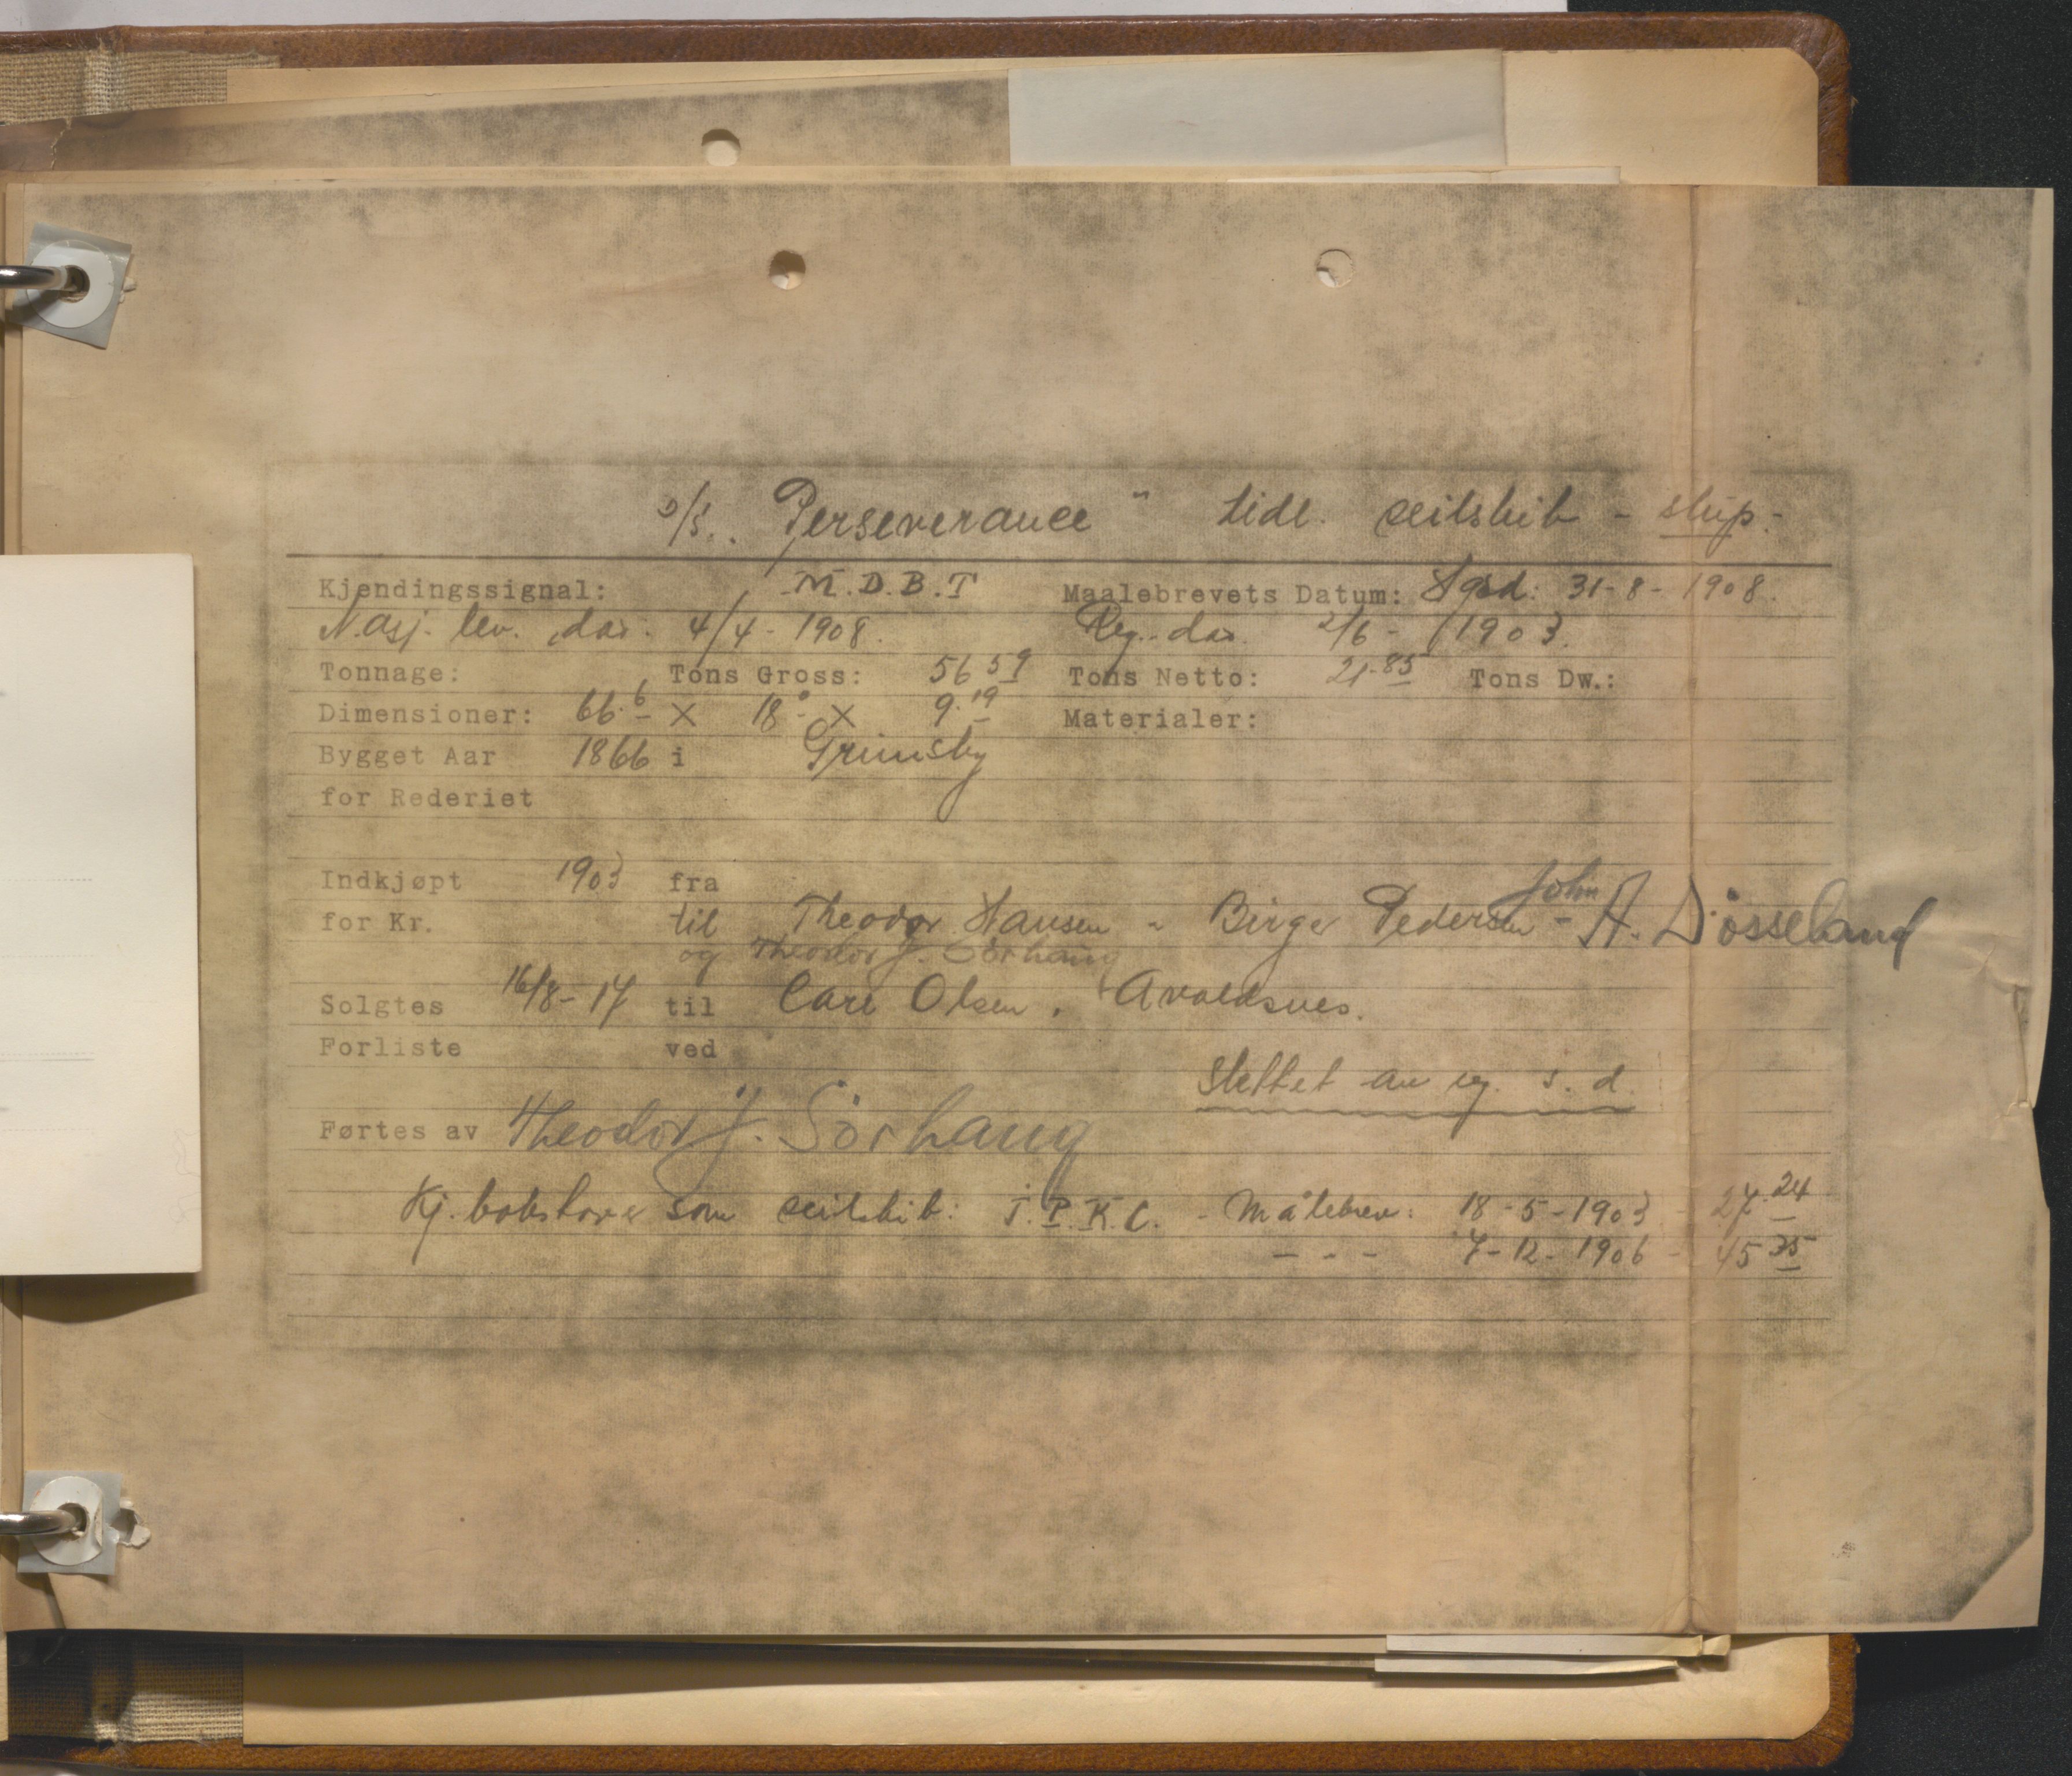 D/S. „Perseverance" tidl. seilskib - slup.-
Kjendingssignal: M.D.B.T Maalebrevets Datum: Hgsd: 31-8-1908.
Nasj. bev. dat. 4/4-1908. Reg. dat. 2/6-1903.
Tonnage: Tons Gross: 56 59 Tons Netto: 21.85 Tons Dw.:
Dimensioner: 66.6 X 18.0 X 9.19 Materialer:
Bygget Aar 1866 i Grimsby
for Rederiet
Indkjøpt 1903 fra
for Kr. til Theodor Hansen - Birger Pedersen - John A. Dösseland
og Theodor J. Sörhaug
Solgtes 16/8-17 til Carl Olsen, Avaldsnes.
Forliste ved
Slettet av reg. s. d.
Førtes av Theodor J. Sörhaug
Kj. bokstaver som seilskib: J.P.K.C. - Målebrev: 18-5-1903 - 27.24
- - - 7-12-1906 - 45 35